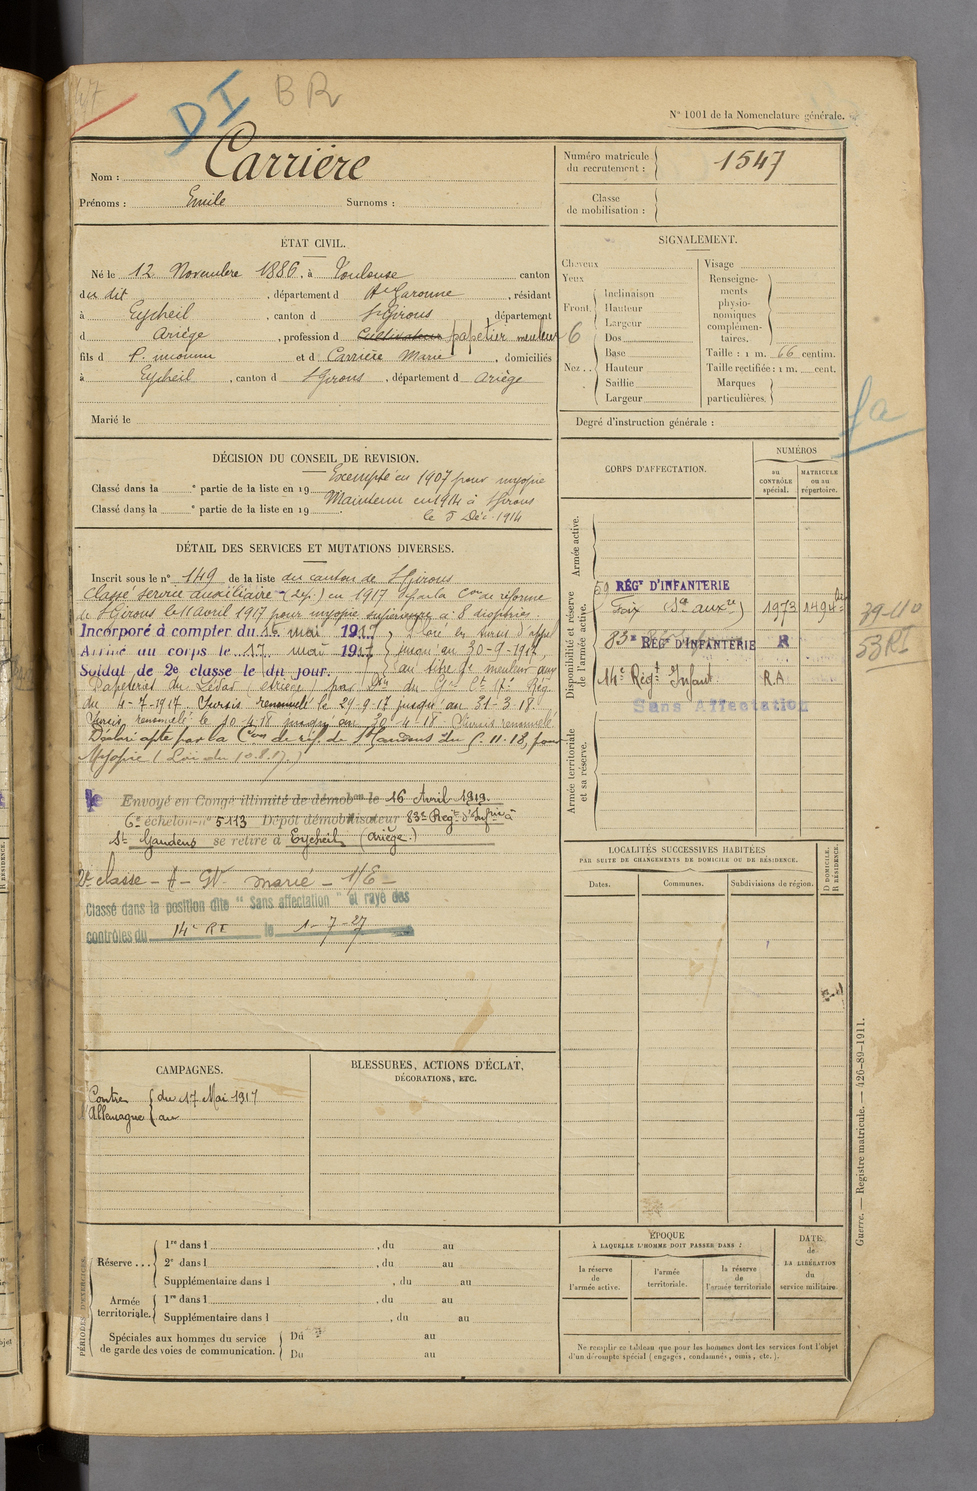 147
DI BR
N° 1001 de la Nomenclature générale.
Nom : Carrière
Prénoms : Emile Surnoms :
Numéro matricule du recrutement : 1547
Classe de mobilisation :
ÉTAT CIVIL.
Né le 12 Novembre 1886, à Toulouse canton
du dit, département d Hte Garonne, résidant
à Eycheil, canton d St Girons, département
d Ariège, profession d Cultivateur papetier meuleur 6
fils d P. inconnu et d Carrière Marie, domiciliés
à Eycheil, canton d St Girons, département d Ariège
Marié le
SIGNALEMENT.
Cheveux
Yeux
Front. Inclinaison
Hauteur
Largeur
Nez.. Dos
Base
Hauteur
Saillie
Largeur
Visage
Renseignements physionomiques complémentaires.
Taille : 1 m. 66 centim.
Taille rectifiée : 1 m. cent.
Marques particulières.
Degré d'instruction générale :
fa
DÉCISION DU CONSEIL DE REVISION.
Exempté en 1907 pour myopie
Classé dans la e partie de la liste en 19
Maintenu en 1914 à St Girons
Classé dans la e partie de la liste en 19
le 5 Déc. 1914
DÉTAIL DES SERVICES ET MUTATIONS DIVERSES.
Inscrit sous le n° 149 de la liste du canton de St Girons
Classé service auxiliaire en 1917 par la Con de réforme
de St Girons le 11 avril 1917 pour myopie supérieure à 8 dioptries
Incorporé à compter du 16 mai 1917, Placé en sursis d'appel
Arrivé au corps le 17 mai 1917 jusqu'au 30-9-1917,
Soldat de 2e classe le du jour. au titre de meuleur aux
Papeteries de Lédar (Ariège) par Don du Gal Ct 17e Rég.
du 4-7-1917. Sursis renouvelé le 29-9-17 jusqu'au 31-3-18.
Sursis renouvelé le 10-4-18 jusqu'au 30-4-18 Sursis renouvelé
Déclaré apte par la Con de réf. de St Gaudens du 5-11-18, pour
Myopie (Loi du 10.8.17.)
Envoyé en Congé illimité de démobon le 16 Avril 1919.
6e échelon n° 5113 Dépôt démobilisateur 83e Régt d'Infrie à
St Gaudens se retire à Eycheil (Ariège.)
2e classe - A - GV. marié - 1/E -
Classé dans la position dite "Sans affectation" et rayé des
contrôles du 14e RI le 1-7-27
CORPS D'AFFECTATION.
NUMÉROS
au CONTRÔLE spécial.
MATRICULE ou au répertoire.
Armée active.
Disponibilité et réserve de l'armée active.
Armée territoriale et sa réserve.
59 RÉGt D'INFANTERIE
Foix (Sce auxre) 1973 1494 bis
83e RÉGt D'INFANTERIE R
14e Régt Infant. R.A.
Sans Affectation
39-110
53 RI
LOCALITÉS SUCCESSIVES HABITÉES
PAR SUITE DE CHANGEMENTS DE DOMICILE OU DE RÉSIDENCE.
Dates.
Communes.
Subdivisions de région.
D DOMICILE.
R RÉSIDENCE.
CAMPAGNES.
Contre l'Allemagne du 17 Mai 1917
au
BLESSURES, ACTIONS D'ÉCLAT,
DÉCORATIONS, ETC.
PÉRIODES D'EXERCICES.
Réserve ... 1re dans l , du au
2e dans l , du au
Supplémentaire dans l , du au
Armée territoriale. 1re dans l , du au
Supplémentaire dans l , du au
Spéciales aux hommes du service de garde des voies de communication. Du au
Du au
ÉPOQUE
À LAQUELLE L'HOMME DOIT PASSER DANS :
la réserve de l'armée active.
l'armée territoriale.
la réserve de l'armée territoriale
DATE de LA LIBÉRATION du service militaire.
Ne remplir ce tableau que pour les hommes dont les services font l'objet
d'un décompte spécial (engagés, condamnés, omis, etc.).
Guerre. — Registre matricule. — 426-89-1911.